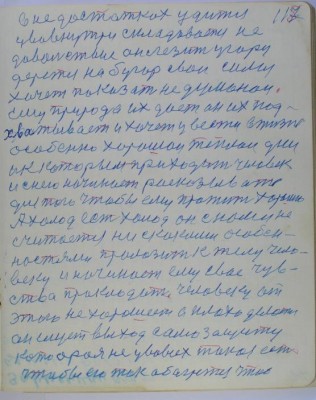 112
в недостатках удити
ув внутри складавается не
давольствие он лезит у гору
дерется на бугор свои силы
хочет показат не думоной.
ему природа их дает он их под-
хватывает и хочет увести в тизне
особенно хорошои теплои дни
и к которым приходит человек
и с него начинает расказыват
для того чтобы ему прожит хорошо
А холод ест холод он с ними не
считается ни с какими особен-
ностями привозит к телу чело-
веку и начинает ему свае чув-
ства прахлодит. человеку от
этого не хорошее а плохо делает
он ищет выход само защиту
которая не увових такоя ест.
чтобы его так абагнет что